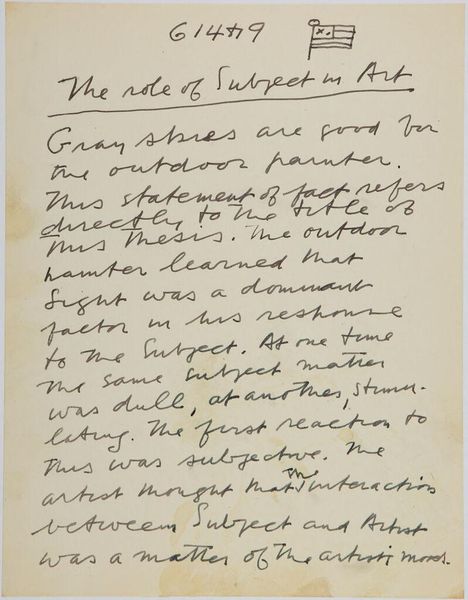 61479
The role of Subject in Art
Gray skies are good for
the outdoor painter.
This statement of fact refers
directly to the title of
this thesis. The outdoor
painter learned that
Sight was a dominant
factor in his response
to the Subject. At one time
the same subject matter
was dull, at another, stimu-
lating. The first reaction to
this was subjective. The
artist thought that the interaction
between Subject and Artist
was a matter of the artist's mood.